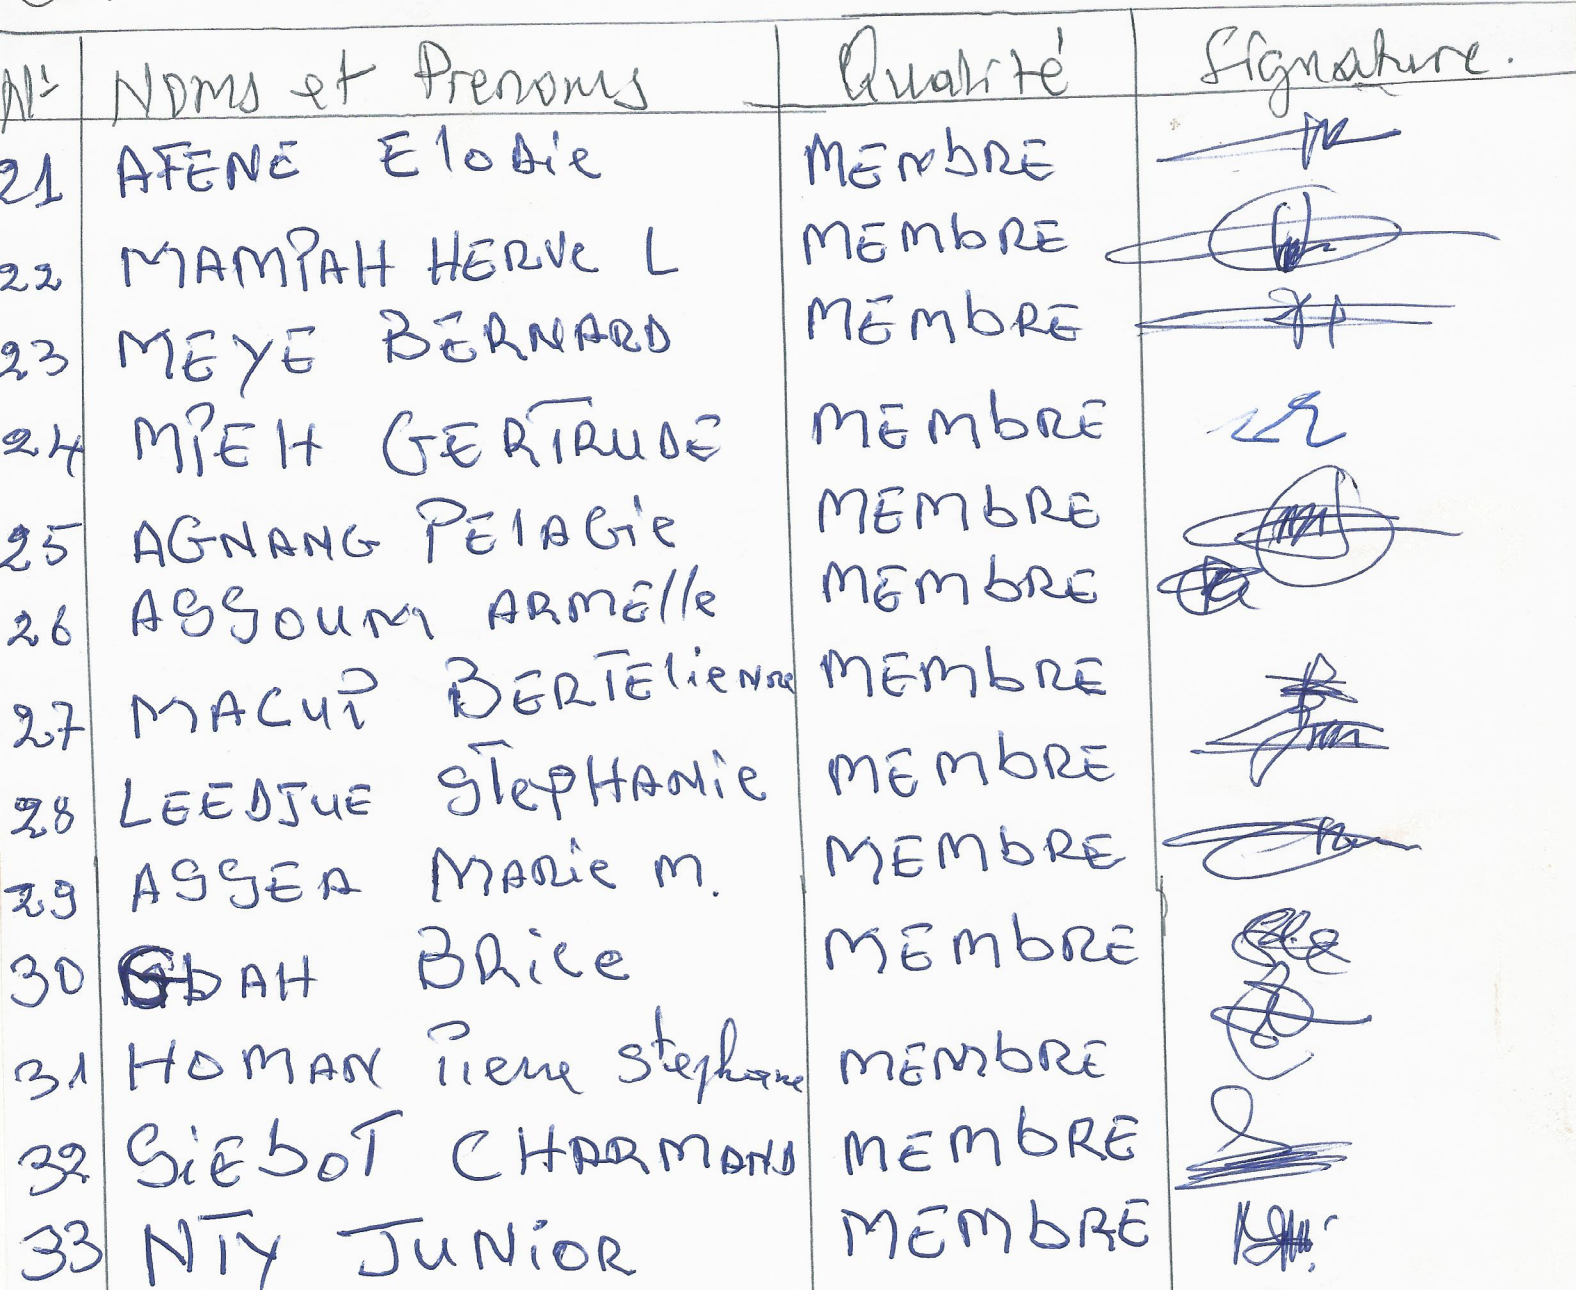 N° Noms et Prenoms Qualité Signature.
21 AFENE Elodie MEMBRE
22 MAMPAH HERVE L MEMBRE
23 MEYE BERNARD MEMBRE
24 MPEH GERTRUDE MEMBRE
25 AGNANG PELAGIE MEMBRE
26 ASSOUM ARMELLE MEMBRE
27 BERTELIENNE MEMBRE
28 LEEDJUE STEPHANIE MEMBRE
29 ASSEA MARIE M. MEMBRE
30 GBAH BRICE MEMBRE
31 HOMAN Pierre Stephane MEMBRE
32 SIEBOT CHARMAND MEMBRE
33 NTY JUNIOR MEMBRE